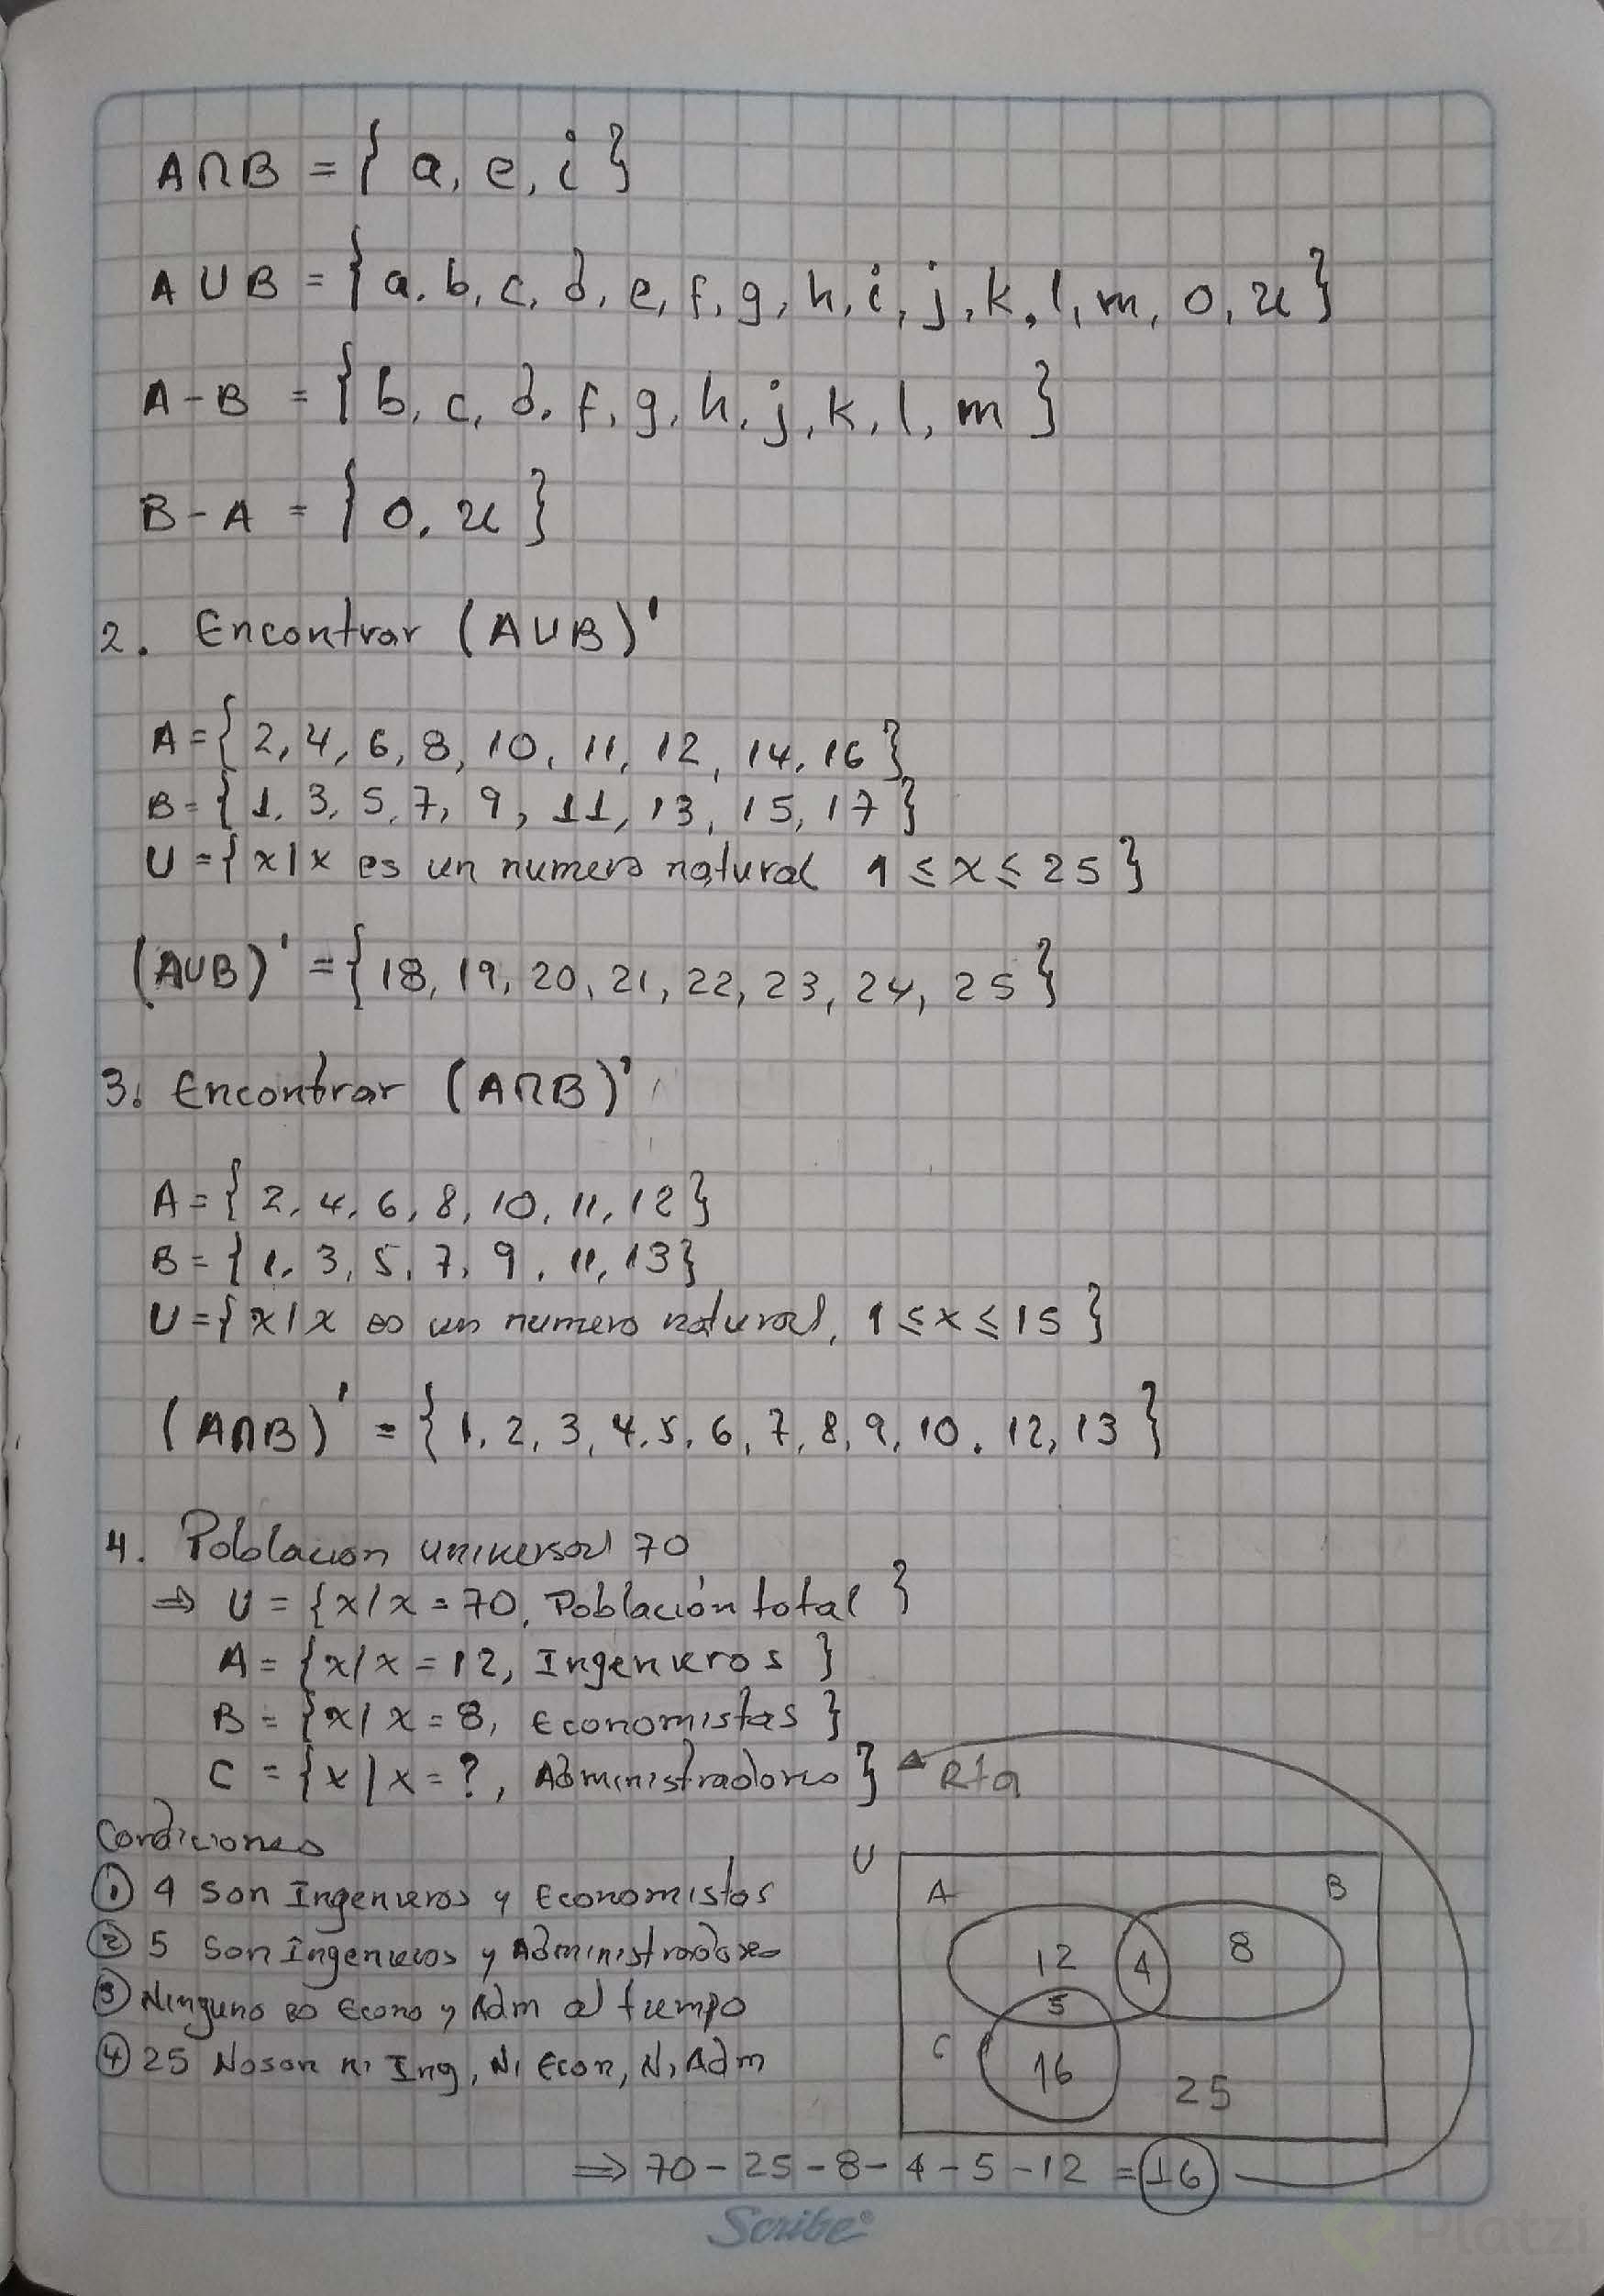 A∩B = { a, e, i }
A∪B = { a, b, c, d, e, f, g, h, i, j, k, l, m, o, u }
A-B = { b, c, d, f, g, h, j, k, l, m }
B-A = { o, u }
2. Encontrar (A∪B)'
A = { 2, 4, 6, 8, 10, 11, 12, 14, 16 }
B = { 1, 3, 5, 7, 9, 11, 13, 15, 17 }
U = { x | x es un numero natural 1 ≤ x ≤ 25 }
(A∪B)' = { 18, 19, 20, 21, 22, 23, 24, 25 }
3. Encontrar (A∩B)'
A = { 2, 4, 6, 8, 10, 11, 12 }
B = { 1, 3, 5, 7, 9, 11, 13 }
U = { x | x es un numero natural, 1 ≤ x ≤ 15 }
(A∩B)' = { 1, 2, 3, 4, 5, 6, 7, 8, 9, 10, 12, 13 }
4. Poblacion universal 70
⇒ U = { x / x = 70, Población total }
A = { x / x = 12, Ingenieros }
B = { x / x = 8, Economistas }
C = { x / x = ?, Administradores } Rta
Condiciones
① 4 Son Ingenieros y Economistas
② 5 Son Ingenieros y Administradores
③ Ninguno es Econo y Adm al tiempo
④ 25 No son ni Ing, Ni Econ, Ni Adm
U
A B
12 4 8
5
C
16
25
⇒ 70 - 25 - 8 - 4 - 5 - 12 = 16
Scribe®
Platzi